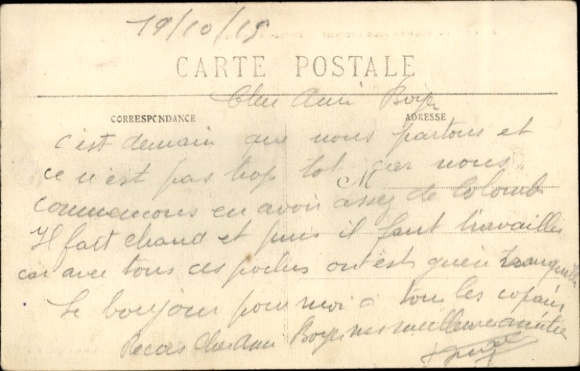 19/10/15
CARTE POSTALE
Cher Ami Boyer
CORRESPONDANCE
ADRESSE
c'est demain que nous partons et
ce n'est pas trop tot car nous
M
commencons en avoir assez de Colomb
Il fait chaud et puis il faut travailler
car avec tous ces on est guère tranquille
Le bonjour pour moi a tous les copains
Recois Cher Ami Boyer mes meilleures amitiés